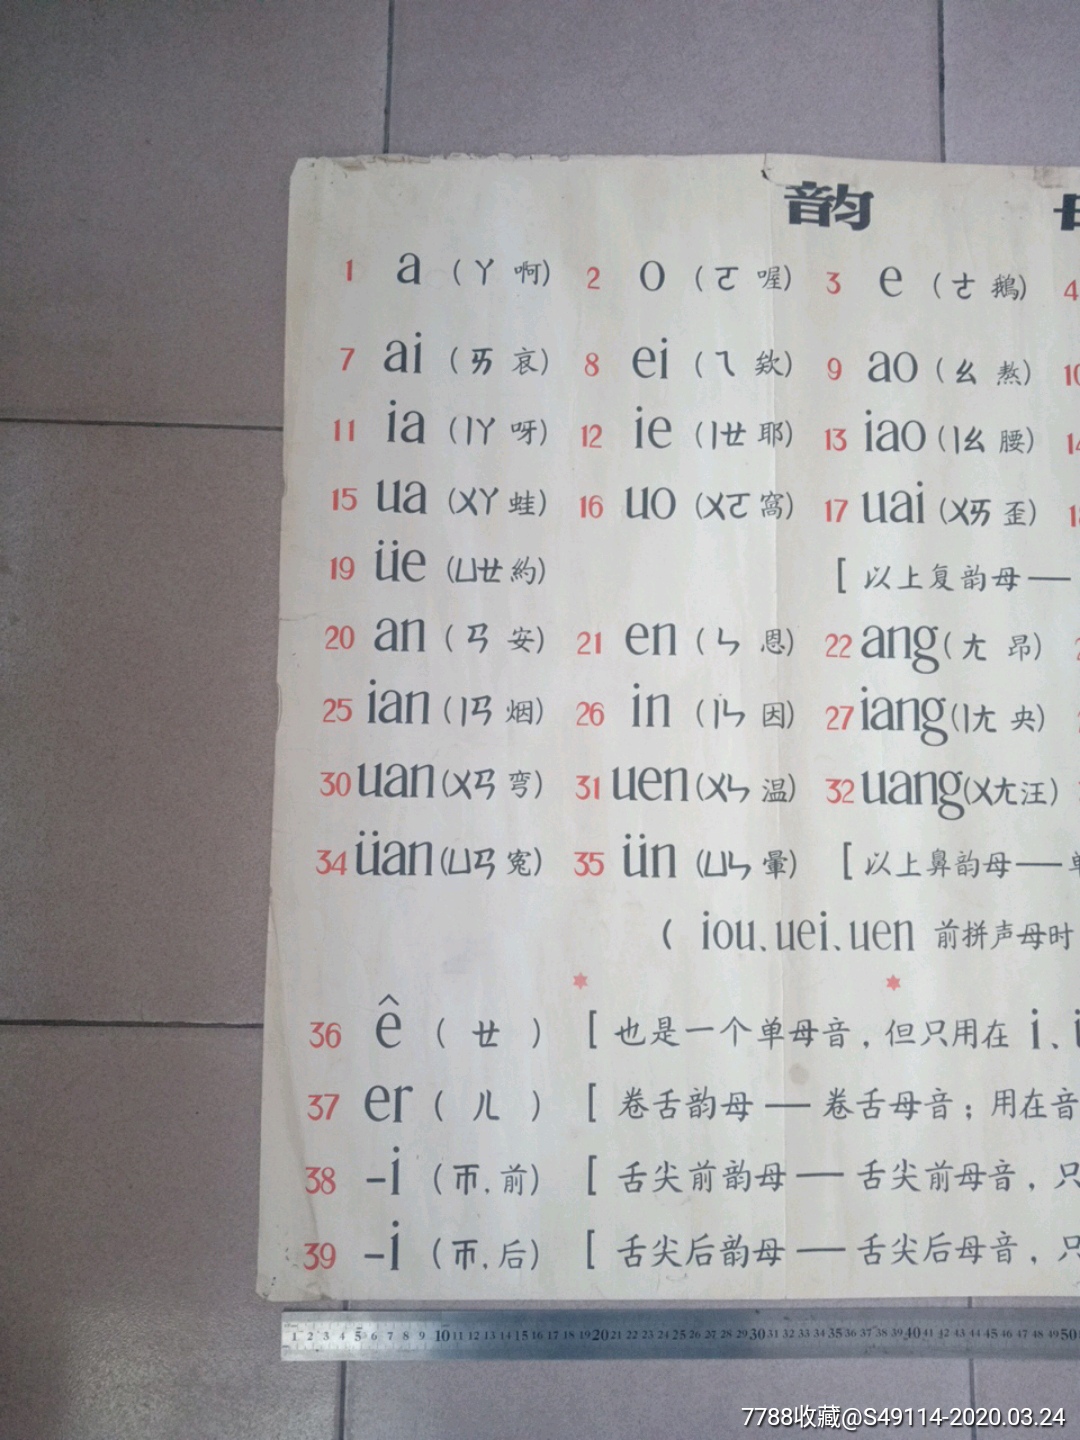 韵
1 a (ㄚ 啊) 2 o (ㄛ 喔) 3 e (ㄜ 鵝) 4
7 ai (ㄞ 哀) 8 ei (ㄟ 欸) 9 ao (ㄠ 熬) 10
11 ia (ㄧㄚ 呀) 12 ie (ㄧㄝ 耶) 13 iao (ㄧㄠ 腰)
15 ua (ㄨㄚ 蛙) 16 uo (ㄨㄛ 窩) 17 uai (ㄨㄞ 歪)
19 üe (ㄩㄝ 約) [以上复韵母——
20 an (ㄢ 安) 21 en (ㄣ 恩) 22 ang (ㄤ 昂)
25 ian (ㄧㄢ 烟) 26 in (ㄧㄣ 因) 27 iang (ㄧㄤ 央)
30 uan (ㄨㄢ 弯) 31 uen (ㄨㄣ 温) 32 uang (ㄨㄤ 汪)
34 üan (ㄩㄢ 寃) 35 ün (ㄩㄣ 暈) [以上鼻韵母——
( iou、uei、uen 前拼声母时
36 ê (ㄝ) [也是一个单母音，但只用在 i、
37 er (ㄦ) [卷舌韵母——卷舌母音；用在音
38 -i (ㄭ,前) [舌尖前韵母——舌尖前母音，只
39 -i (ㄭ,后) [舌尖后韵母——舌尖后母音，只
1 2 3 4 5 6 7 8 9 10 11 12 13 14 15 16 17 18 19 20 21 22 23 24 25 26 27 28 29 30 31 32 33 34 35 36 37 38 39 40 41 42 43 44 45 46 47 48 49 50
7788收藏@S49114-2020.03.24